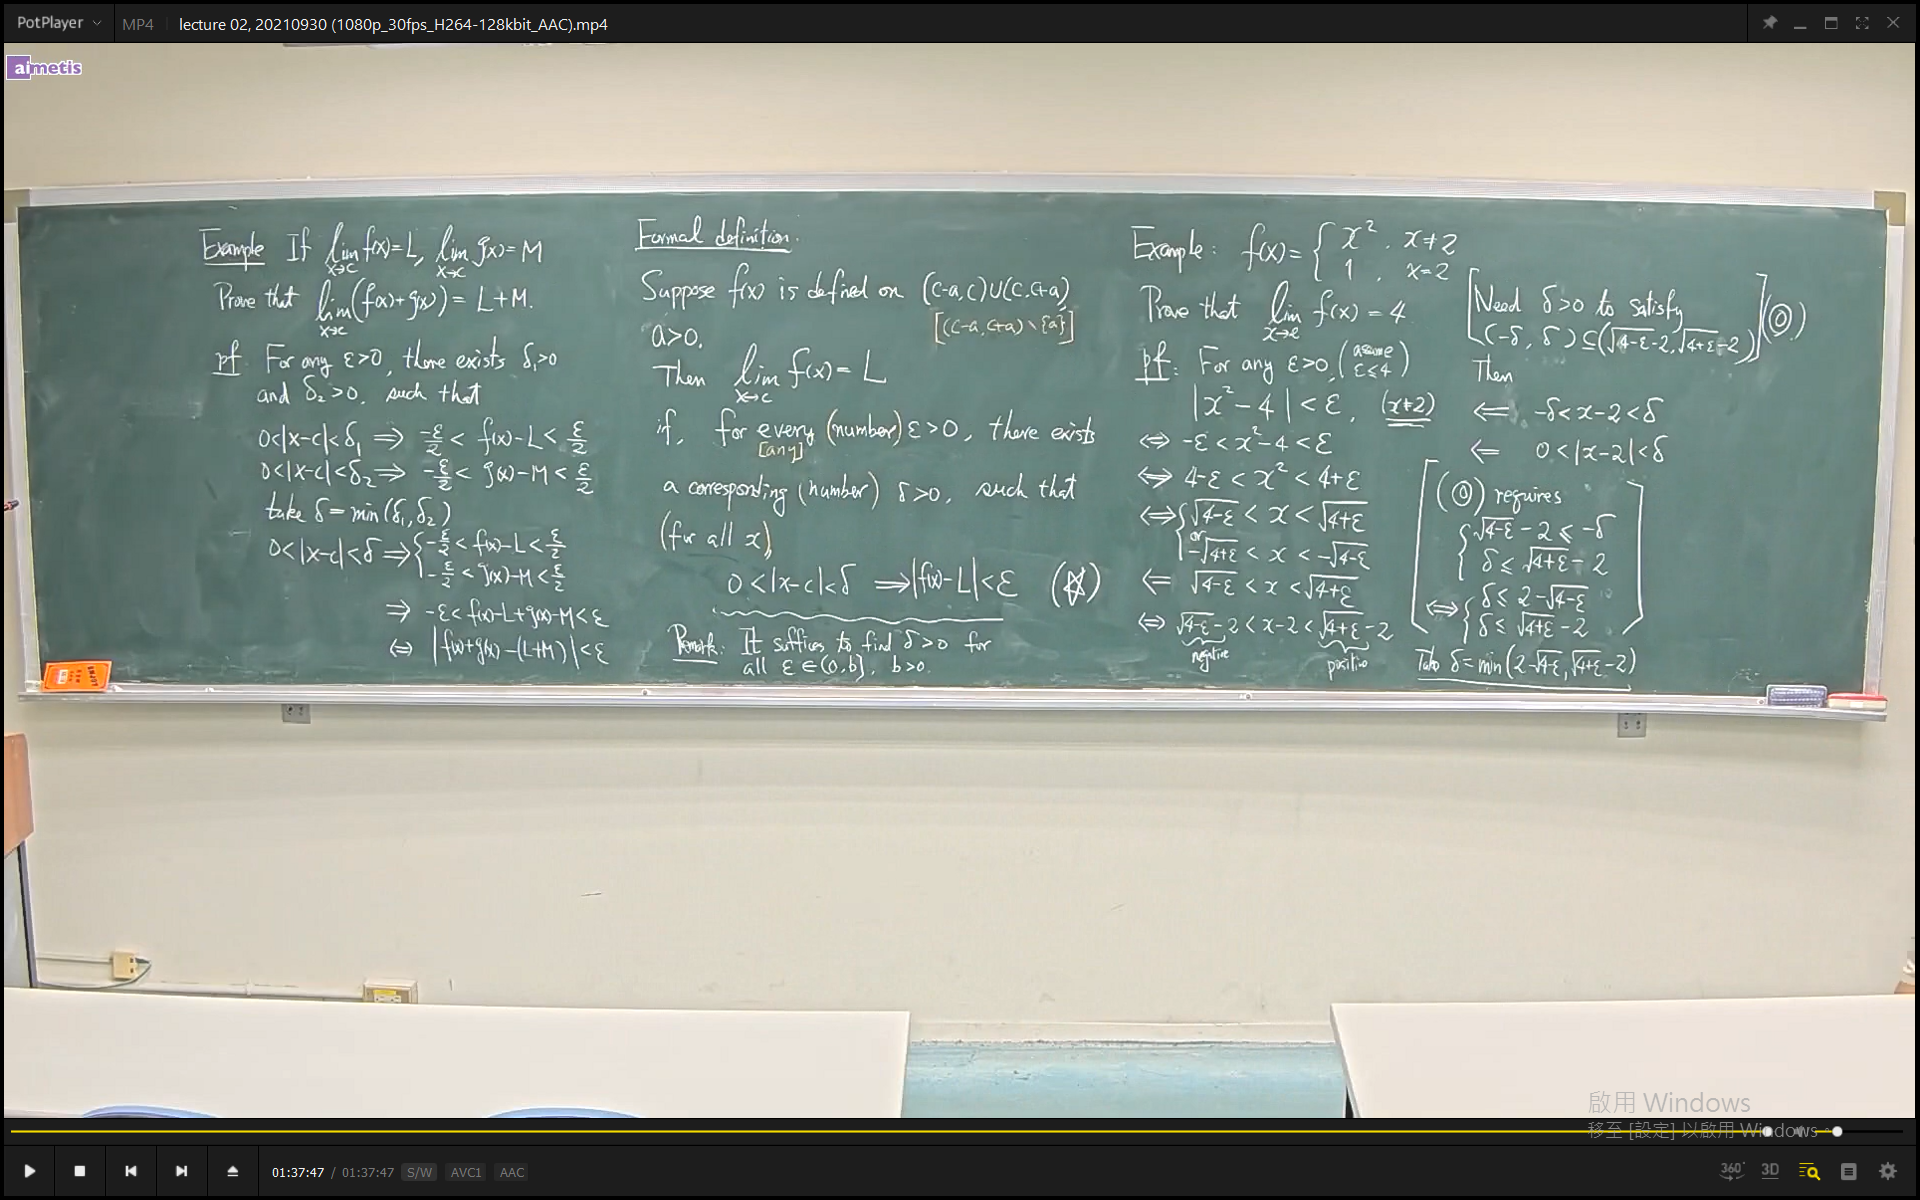 PotPlayer MP4 lecture 02, 20210930 (1080p_30fps_H264-128kbit_AAC).mp4
aimetis
Example If lim f(x)=L, lim g(x)=M
x→c x→c
Prove that lim (f(x)+g(x)) = L+M.
x→c
pf. For any ε>0, there exists δ₁>0
and δ₂>0, such that
0<|x-c|<δ₁ ⇒ -ε/2 < f(x)-L < ε/2
0<|x-c|<δ₂ ⇒ -ε/2 < g(x)-M < ε/2
take δ=min(δ₁,δ₂)
0<|x-c|<δ ⇒ { -ε/2 < f(x)-L < ε/2
-ε/2 < g(x)-M < ε/2
⇒ -ε < f(x)-L+g(x)-M < ε
⇔ |f(x)+g(x)-(L+M)| < ε
Formal definition.
Suppose f(x) is defined on (c-a,c)∪(c,c+a)
[(c-a,c+a)∖{a}]
a>0.
Then lim f(x) = L
x→c
if, for every (number) ε>0, there exists
[any]
a corresponding (number) δ>0, such that
(for all x),
0<|x-c|<δ ⇒ |f(x)-L|<ε (☆)
Remark: It suffices to find δ>0 for
all ε∈(0,b], b>0.
Example: f(x) = { x², x≠2
1, x=2
Prove that lim f(x) = 4
x→2
pf: For any ε>0, (assume ε≤4)
|x²-4| < ε, (x≠2)
⇔ -ε < x²-4 < ε
⇔ 4-ε < x² < 4+ε
⇔ { √4-ε < x < √4+ε
or
-√4+ε < x < -√4-ε
⇐ √4-ε < x < √4+ε
⇔ √4-ε -2 < x-2 < √4+ε -2
negative positive
[Need δ>0 to satisfy
(-δ, δ) ⊆ (√4-ε -2, √4+ε -2)] (◎)
Then
⇐ -δ < x-2 < δ
⇐ 0<|x-2|<δ
[(◎) requires
{ √4-ε -2 ≤ -δ
δ ≤ √4+ε -2
⇔ { δ ≤ 2-√4-ε
δ ≤ √4+ε -2 ]
Take δ=min(2-√4-ε, √4+ε -2)
啟用 Windows
移至 [設定] 以啟用 Windows。
01:37:47 / 01:37:47 S/W AVC1 AAC
360° 3D